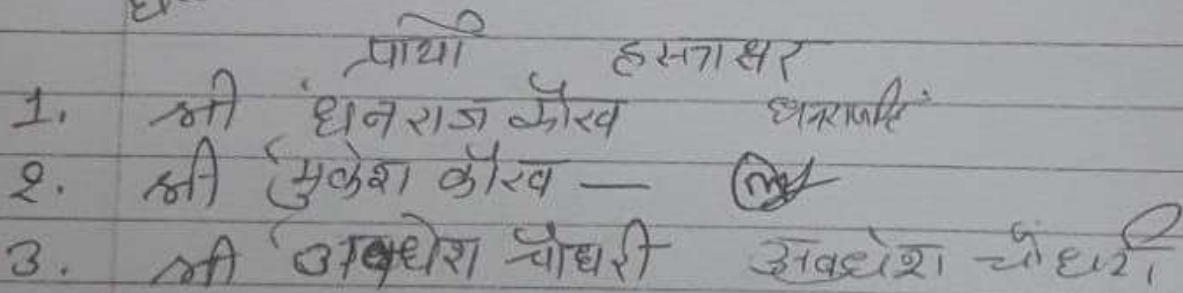 प्रार्थी हस्ताक्षर
1. श्री धनराज कौरव धनराजसिंह
2. श्री मुकेश कौरव —
3. श्री अवधेश चौधरी अवधेश चौधरी